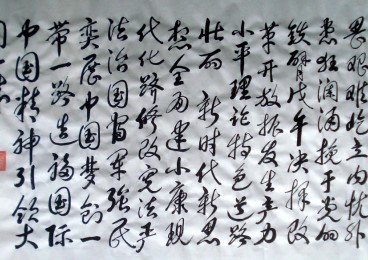 畏艰难屹立内忧外
患狂澜涌挽于党的
铁臂戊午决择改
革开放振发生产力
小平理论特色道路
壮丽 新时代新思
想全面建小康现
代化跻修改宪法严
法治国富军强民
奕展中国梦创一
带一路造福国际
中国精神引领大